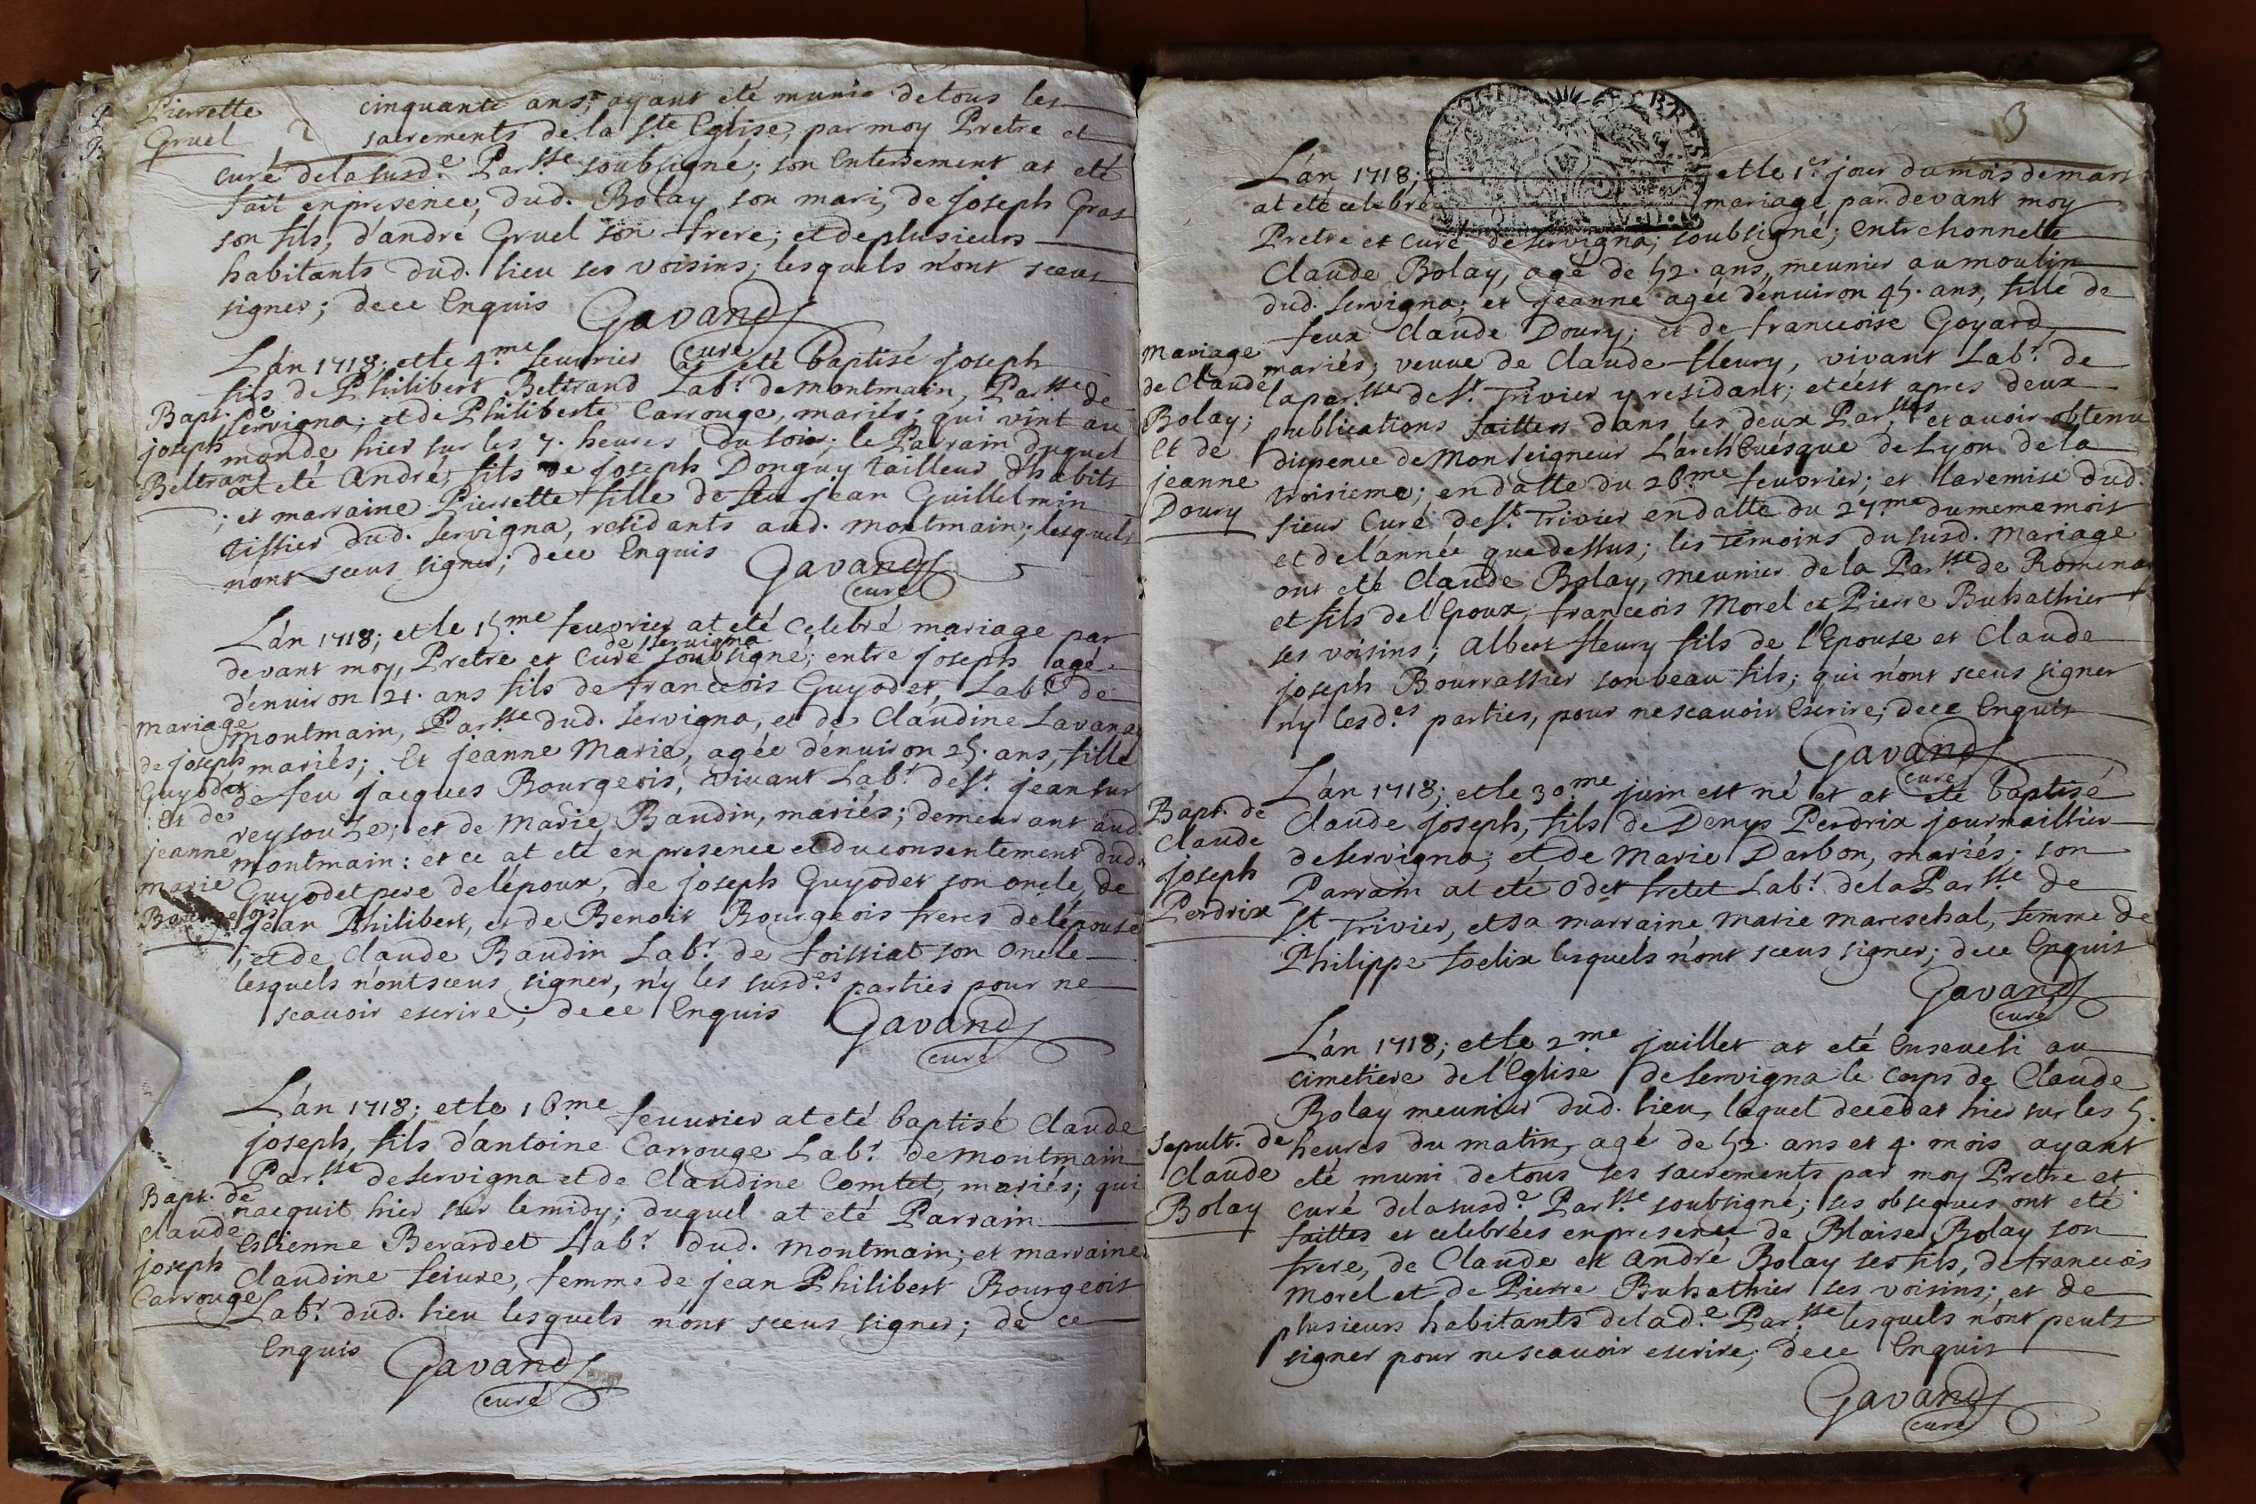 Pierrette
Gruel
cinquante ans; ayant eté munie de tous les
sacrements de la Ste Eglise, par moy Pretre et
curé de la susd.e Par.sse soubsigné; son Enterrement at eté
fait en presence, dud. Bolay son mari, de joseph Gras
son fils, d'andré Gruel son frere; et de plusieurs
habitants dud. lieu ses voisins; lesquels n'ont sceus
signer; de ce Enquis Gavand
curé
L'án 1718; et le 4.me feuvrier at eté baptisé joseph
fils de Philibert Beltrand Lab.r de montmain, Par.sse de
servigna; et de Philiberte Carrouge, mariés; qui vint au
monde hier sur les 7. heures du soir; le Parrain duquel
at eté André, fils de joseph Donguy tailleur d'habits
; et marraine Pierrette fille de feu jean Guillelmin
tissier dud. servigna, residants aud. montmain; lesquels
n'ont sceus signer; de ce Enquis Gavand
curé
Bapt. de
joseph
Beltrand
L'án 1718; et le 15.me feuvrier at eté Celebré mariage par
de servigna
devant moy, Pretre et Curé soubsigné; entre joseph agé
d'énuiron 21. ans fils de franceois Guyodet, Lab.r de
montmain, Par.sse dud. servigna, et de Claudine Lavana
mariés; Et jeanne Marie, agée d'énuiron 25. ans, fille
de feu jacques Bourgeois, vivant Lab.r de s.t jean sur
reysouze; et de Marie Baudin, mariés; demeurant aud.
montmain: et ce at eté en presence et du consentement dud.
Guyodet pere de l'époux, de joseph Guyodet son oncle, de
jean Philibert, et de Benoit Bourgeois freres de l'épouse
; et de Claude Baudin Lab.r de foissiat son oncle
lesquels n'ont sceus signer, n'y les susd.es parties pour ne
scauoir escrire; de ce Enquis Gavand
curé
mariage
de joseph
Guyodet
; Et de
jeanne
marie
Bourgeois
L'án 1718; et le 16.me feuvrier at eté baptisé Claude
joseph, fils d'antoine Carrouge Lab.r de montmain
Par.sse de servigna et de Claudine Comtet, mariés; qui
nacquit hier sur le midy; duquel at eté Parrain
Estienne Berardet Lab.r dud. montmain; et marraine
Claudine feiure, femme de jean Philibert Bourgeois
Lab.r dud. lieu lesquels n'ont sceus signer; de ce
Enquis Gavand
curé
Bapt. de
claude
joseph
Carrouge
3
L'án 1718; et le 1.er jour du mois de mars
at eté celebré mariage par devant moy
Pretre et Curé de servigna; soubsigné; entre honnette
Claude Bolay, agé de 52. ans, meunier au moulin
dud. servigna; et jeanne agée d'énuiron 45. ans, fille de
feux Claude Doury; et de franceoise Goyard,
mariés; veuue de Claude fleury, vivant Lab.r de
la par.sse de s.t Trivier y residant; et c'ést apres deux
publications faittes dans les deux Par.sses et avoir obtenu
dispence de Monseigneur L'archEuésque de Lyon de la
troisieme; en datte du 26.me feuvrier; et la remise dud.
sieur Curé de s.t Trivier en datte du 27.me du meme mois
et de l'année que dessus; les Temoins du susd. Mariage
ont eté Claude Bolay, meunier de la Par.sse de Romena
et fils de l'Epoux, franceois Morel et Pierre Buhathier
ses voisins; Albert fleury fils de l'Epouse et Claude
joseph Bourrassier son beau fils; qui n'ont sceus signer
n'y lesd.es parties, pour ne scauoir Escrire; de ce Enquis
Gavand
curé
mariage
de Claude
Bolay;
Et de
jeanne
Doury
L'án 1718; et le 30.me juin est né et at eté baptisé
Claude joseph, fils de Denys Perdrix journaillier
de servigna; et de Marie Darbon, mariés; son
Parrain at eté Odet fretet Lab.r de la Par.sse de
s.t Trivier, et sa marraine Marie Mareschal, femme de
Philippe foelix lesquels n'ont sceus signer; de ce Enquis
Gavand
curé
Bapt. de
Claude
joseph
Perdrix
L'án 1718; et le 2.me juillet at eté Enseueli au
cimetiere de l'Eglise de servigna le corps de Claude
Bolay meunier dud. lieu, lequel decedat hier sur les 5.
heures du matin, agé de 52. ans et 4. mois ayant
eté muni de tous ses sacrements par moy Pretre et
curé de la susd.e Par.sse soubsigné; ses obseques ont eté
faittes et celebrées en presence de Blaise Bolay son
frere, de Claude et André Bolay ses fils, de franceois
Morel et de Pierre Buhathier ses voisins; et de
plusieurs habitants de lad.e Par.sse lesquels n'ont peuts
signer pour ne scauoir escrire; de ce Enquis
Gavand
curé
sepult. de
Claude
Bolay